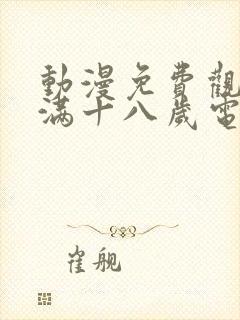 動漫免費觀
滿十八歲電
崔舰